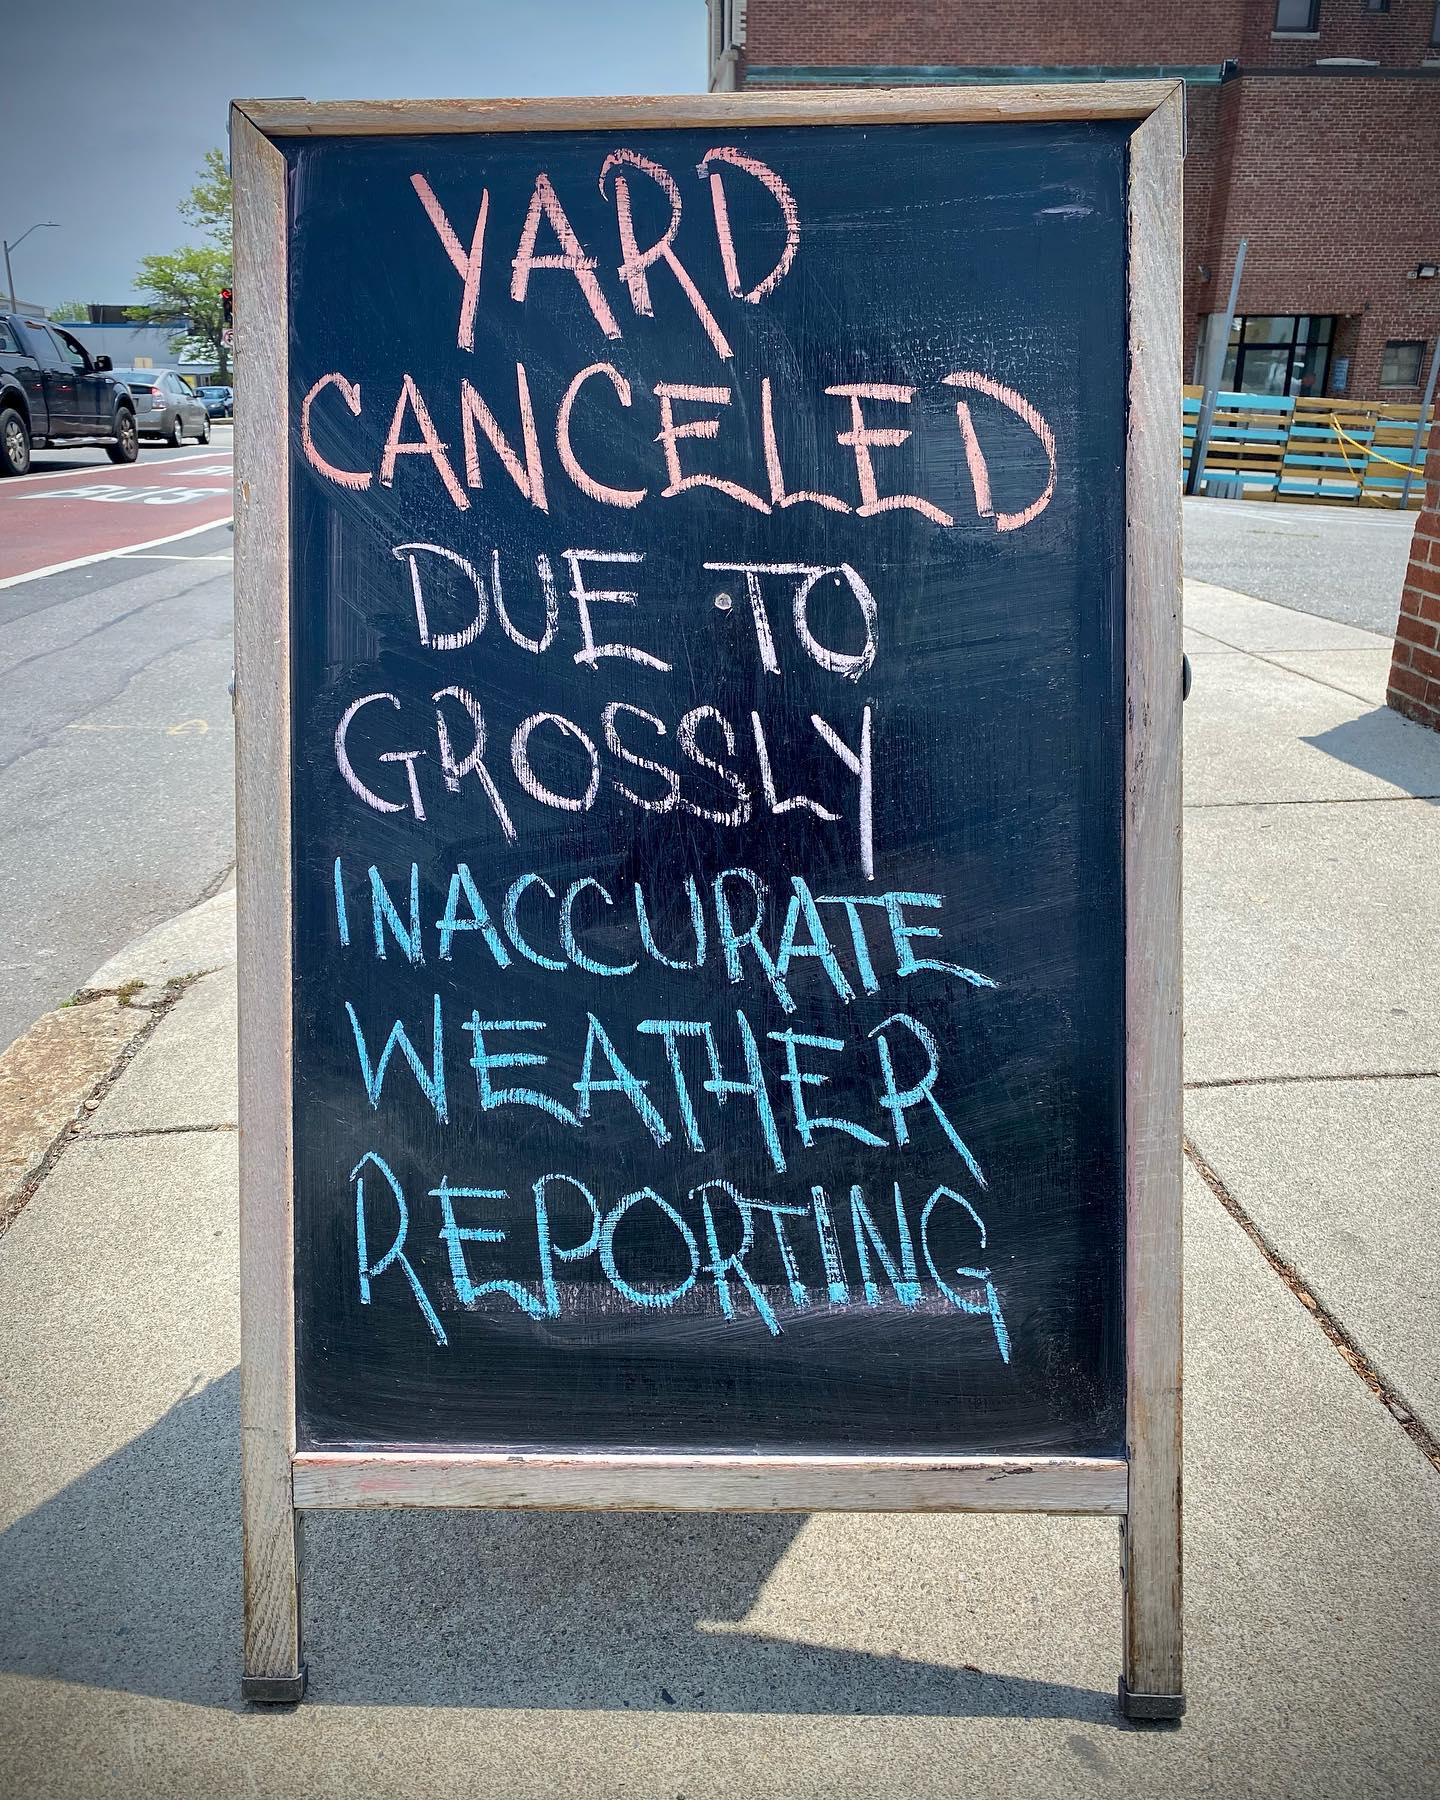 YARD
CANCELED
DUE TO
GROSSLY
INACCURATE
WEATHER
REPORTING
BUS